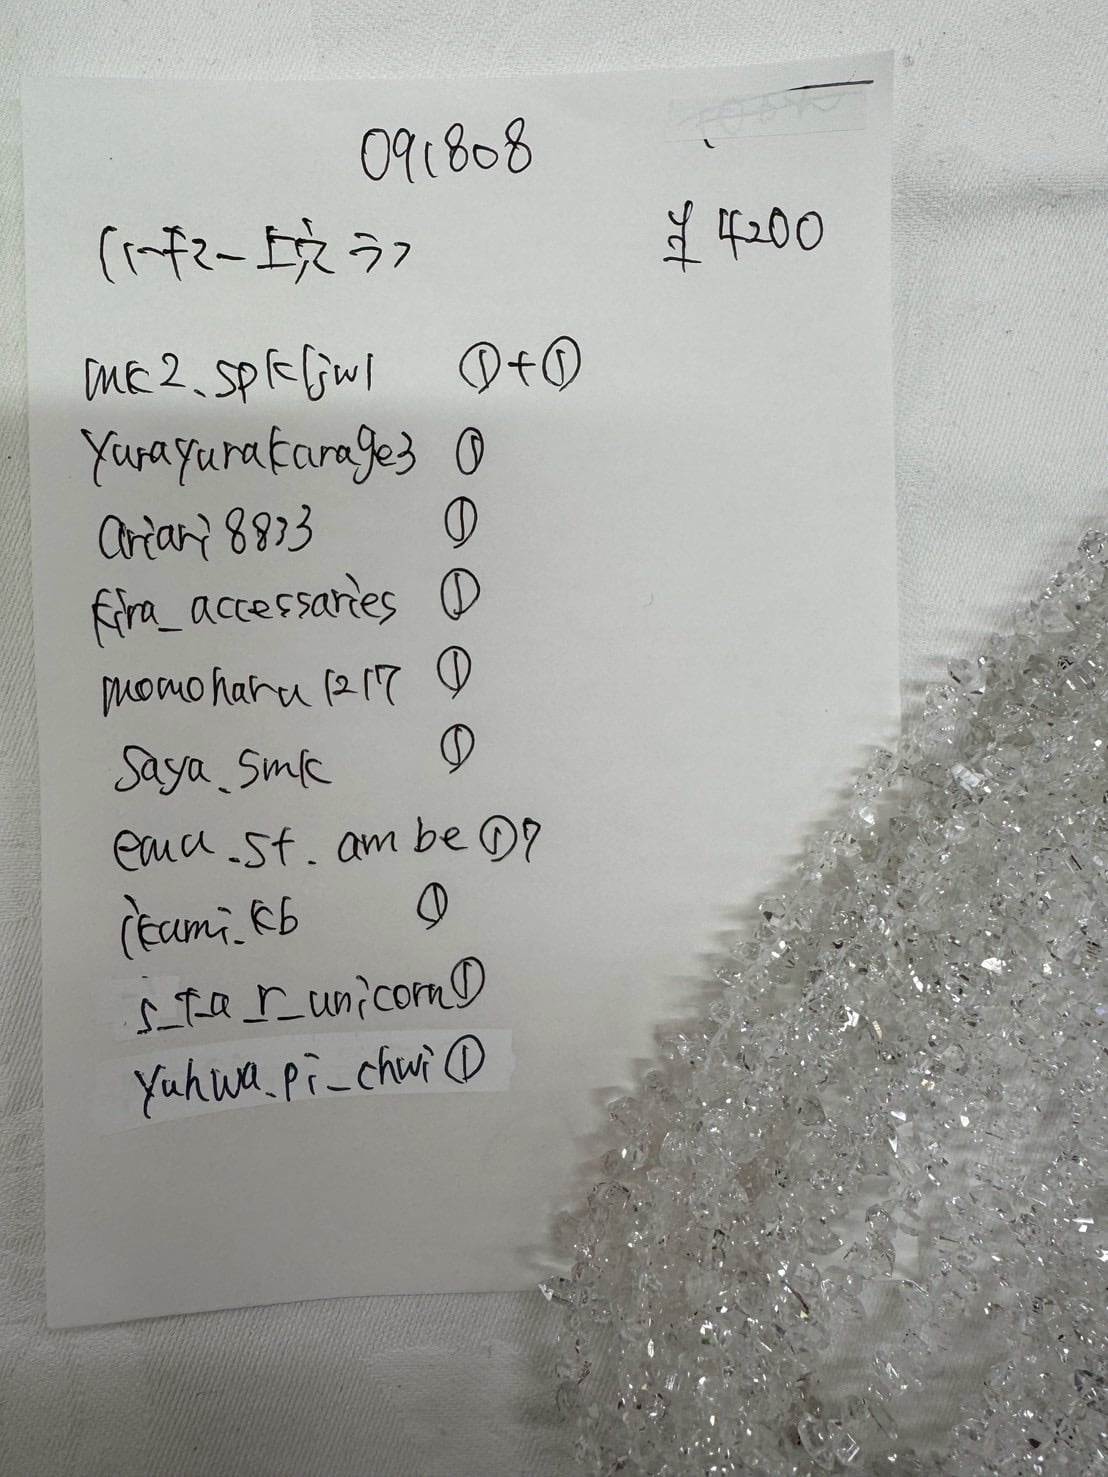 091808
¥4200
mk2.spkljwl ①+①
yurayurakarage3 ①
ariari8833 ①
kira_accessaries ①
momoharu1217 ①
saya.smk ①
emu.st.ambe ①?
ikumi_kb ①
s_ta_r_unicorn ①
yuhwa.pi_chwi ①